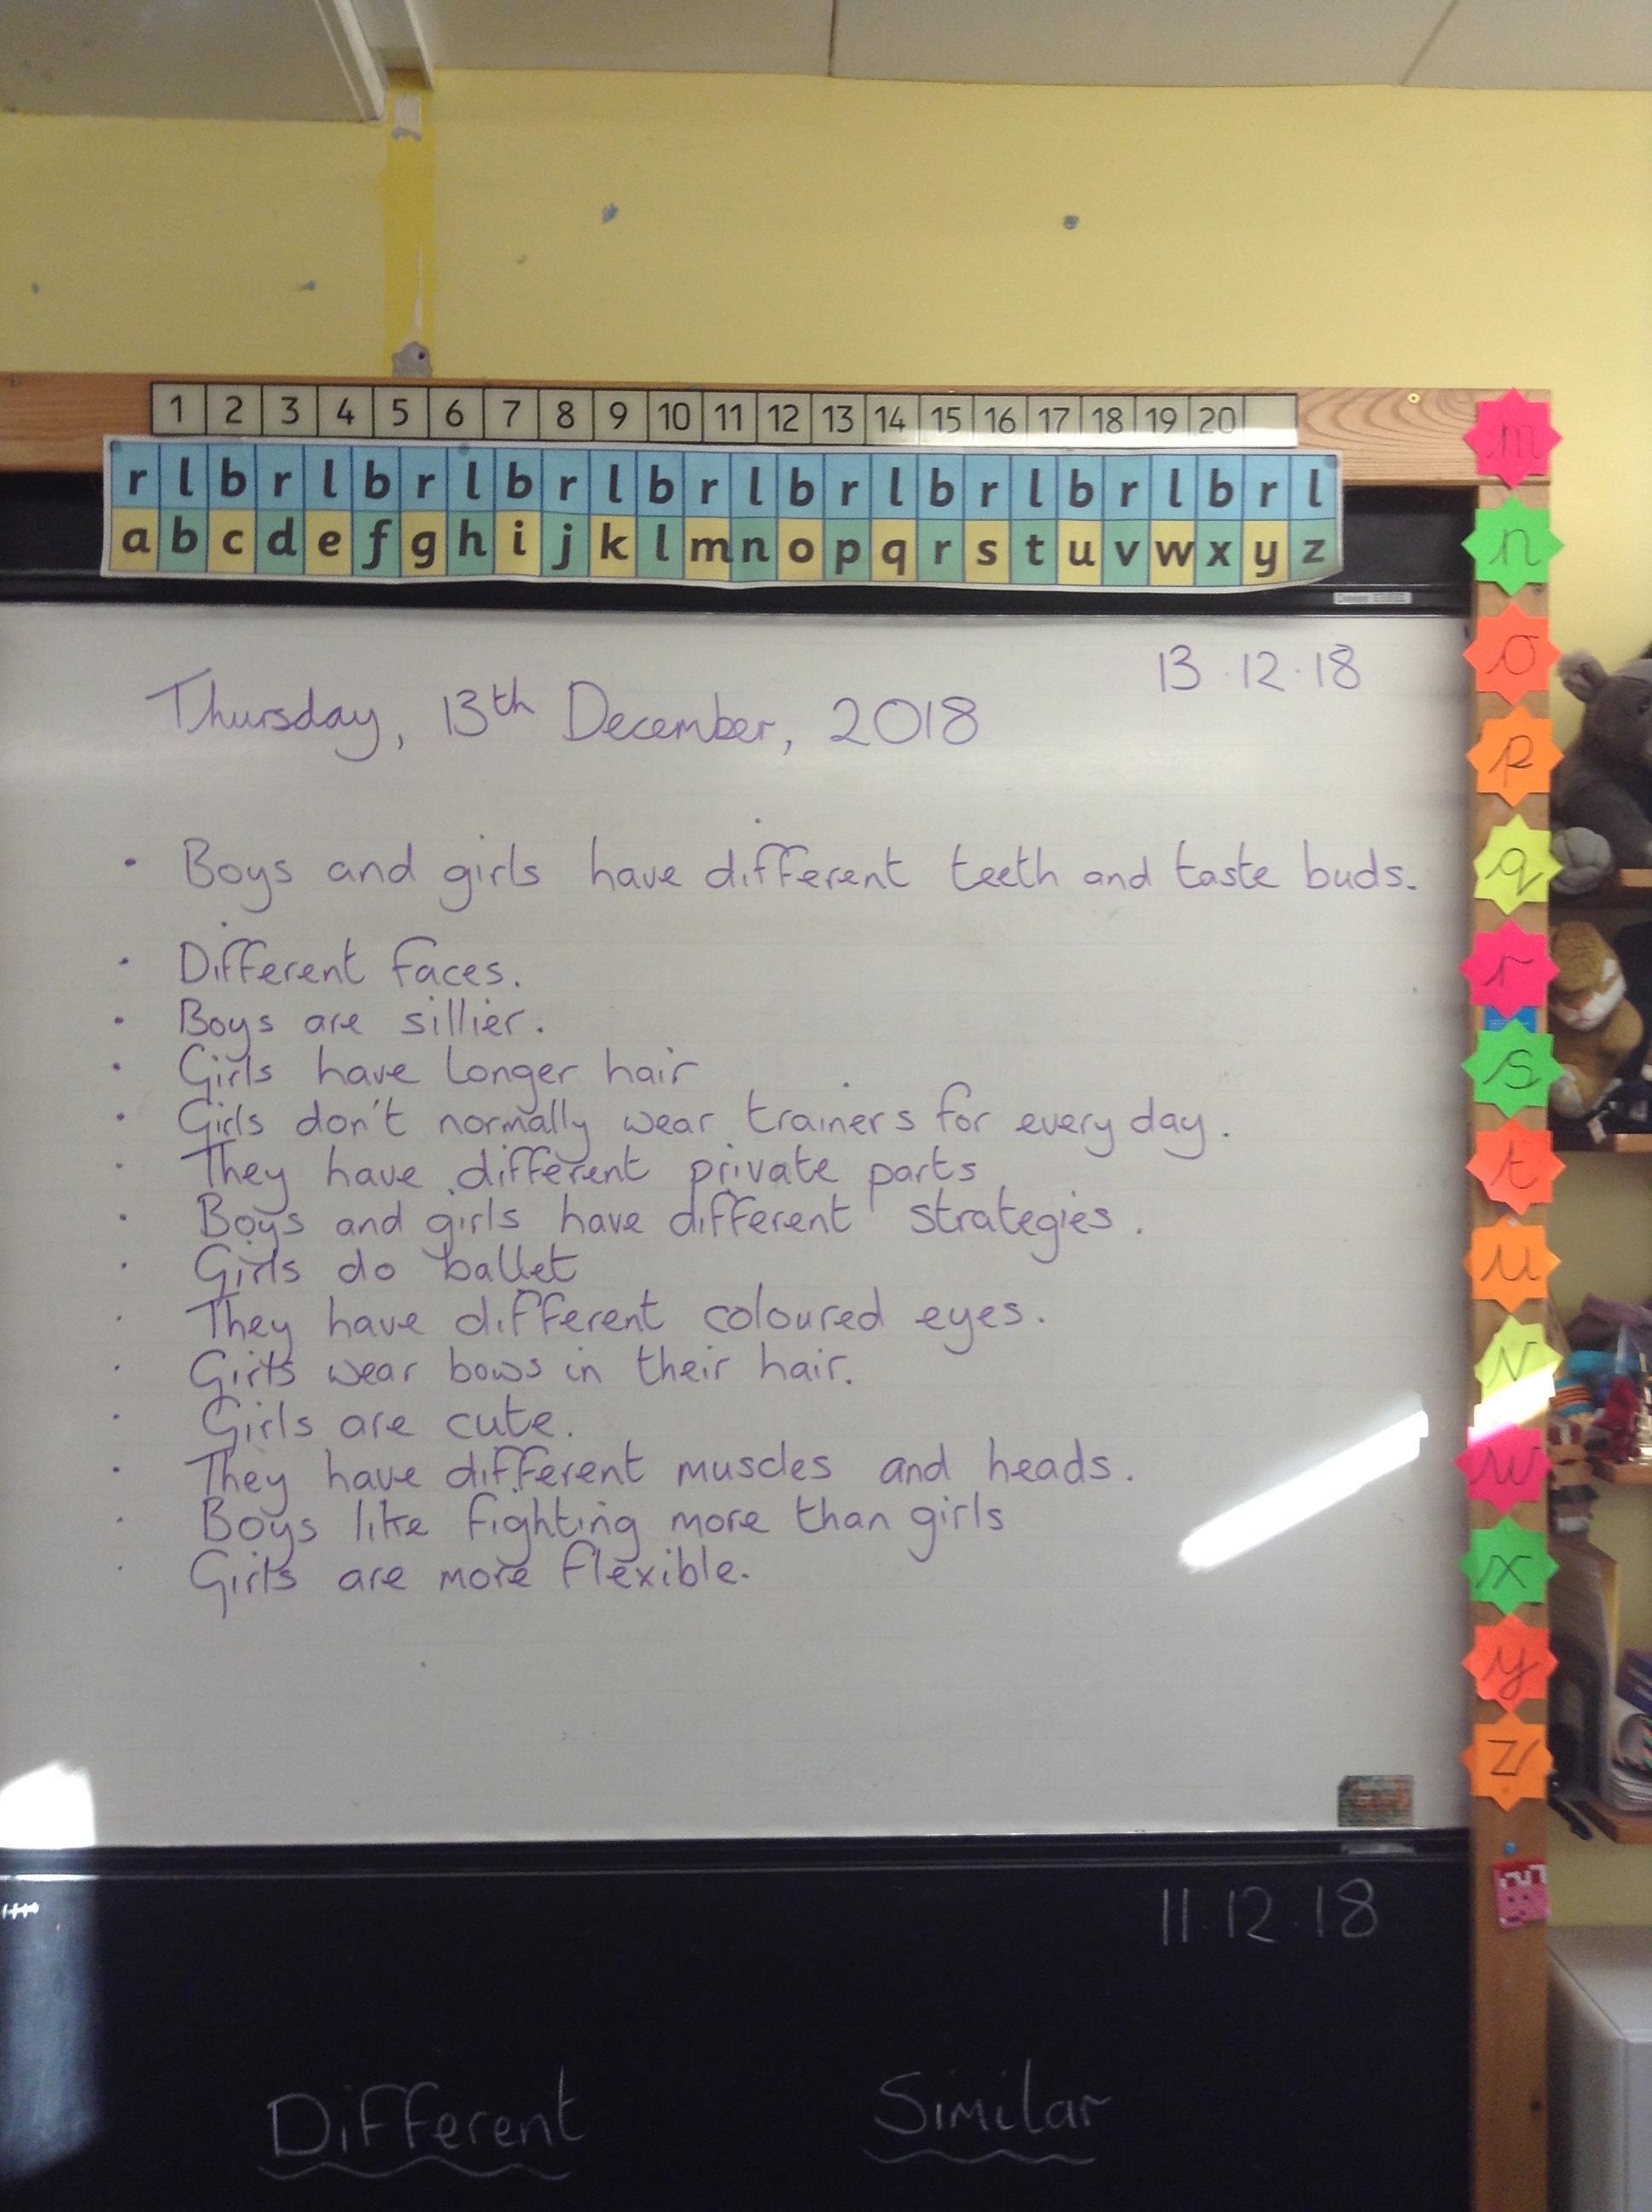 1 2 3 4 5 6 7 8 9 10 11 12 13 14 15 16 17 18 19 20
r l b r l b r l b r l b r l b r l b r l b r l b r l
a b c d e f g h i j k l m n o p q r s t u v w x y z
13.12.18
Thursday, 13th December, 2018
• Boys and girls have different teeth and taste buds.
• Different faces.
• Boys are sillier.
• Girls have longer hair
• Girls don't normally wear trainers for every day.
• They have different private parts
• Boys and girls have different strategies.
• Girls do ballet
• They have different coloured eyes.
• Girls wear bows in their hair.
• Girls are cute.
• They have different muscles and heads.
• Boys like fighting more than girls
• Girls are more flexible.
11.12.18
Different Similar
m
n
o
p
q
r
s
t
u
v
w
x
y
z